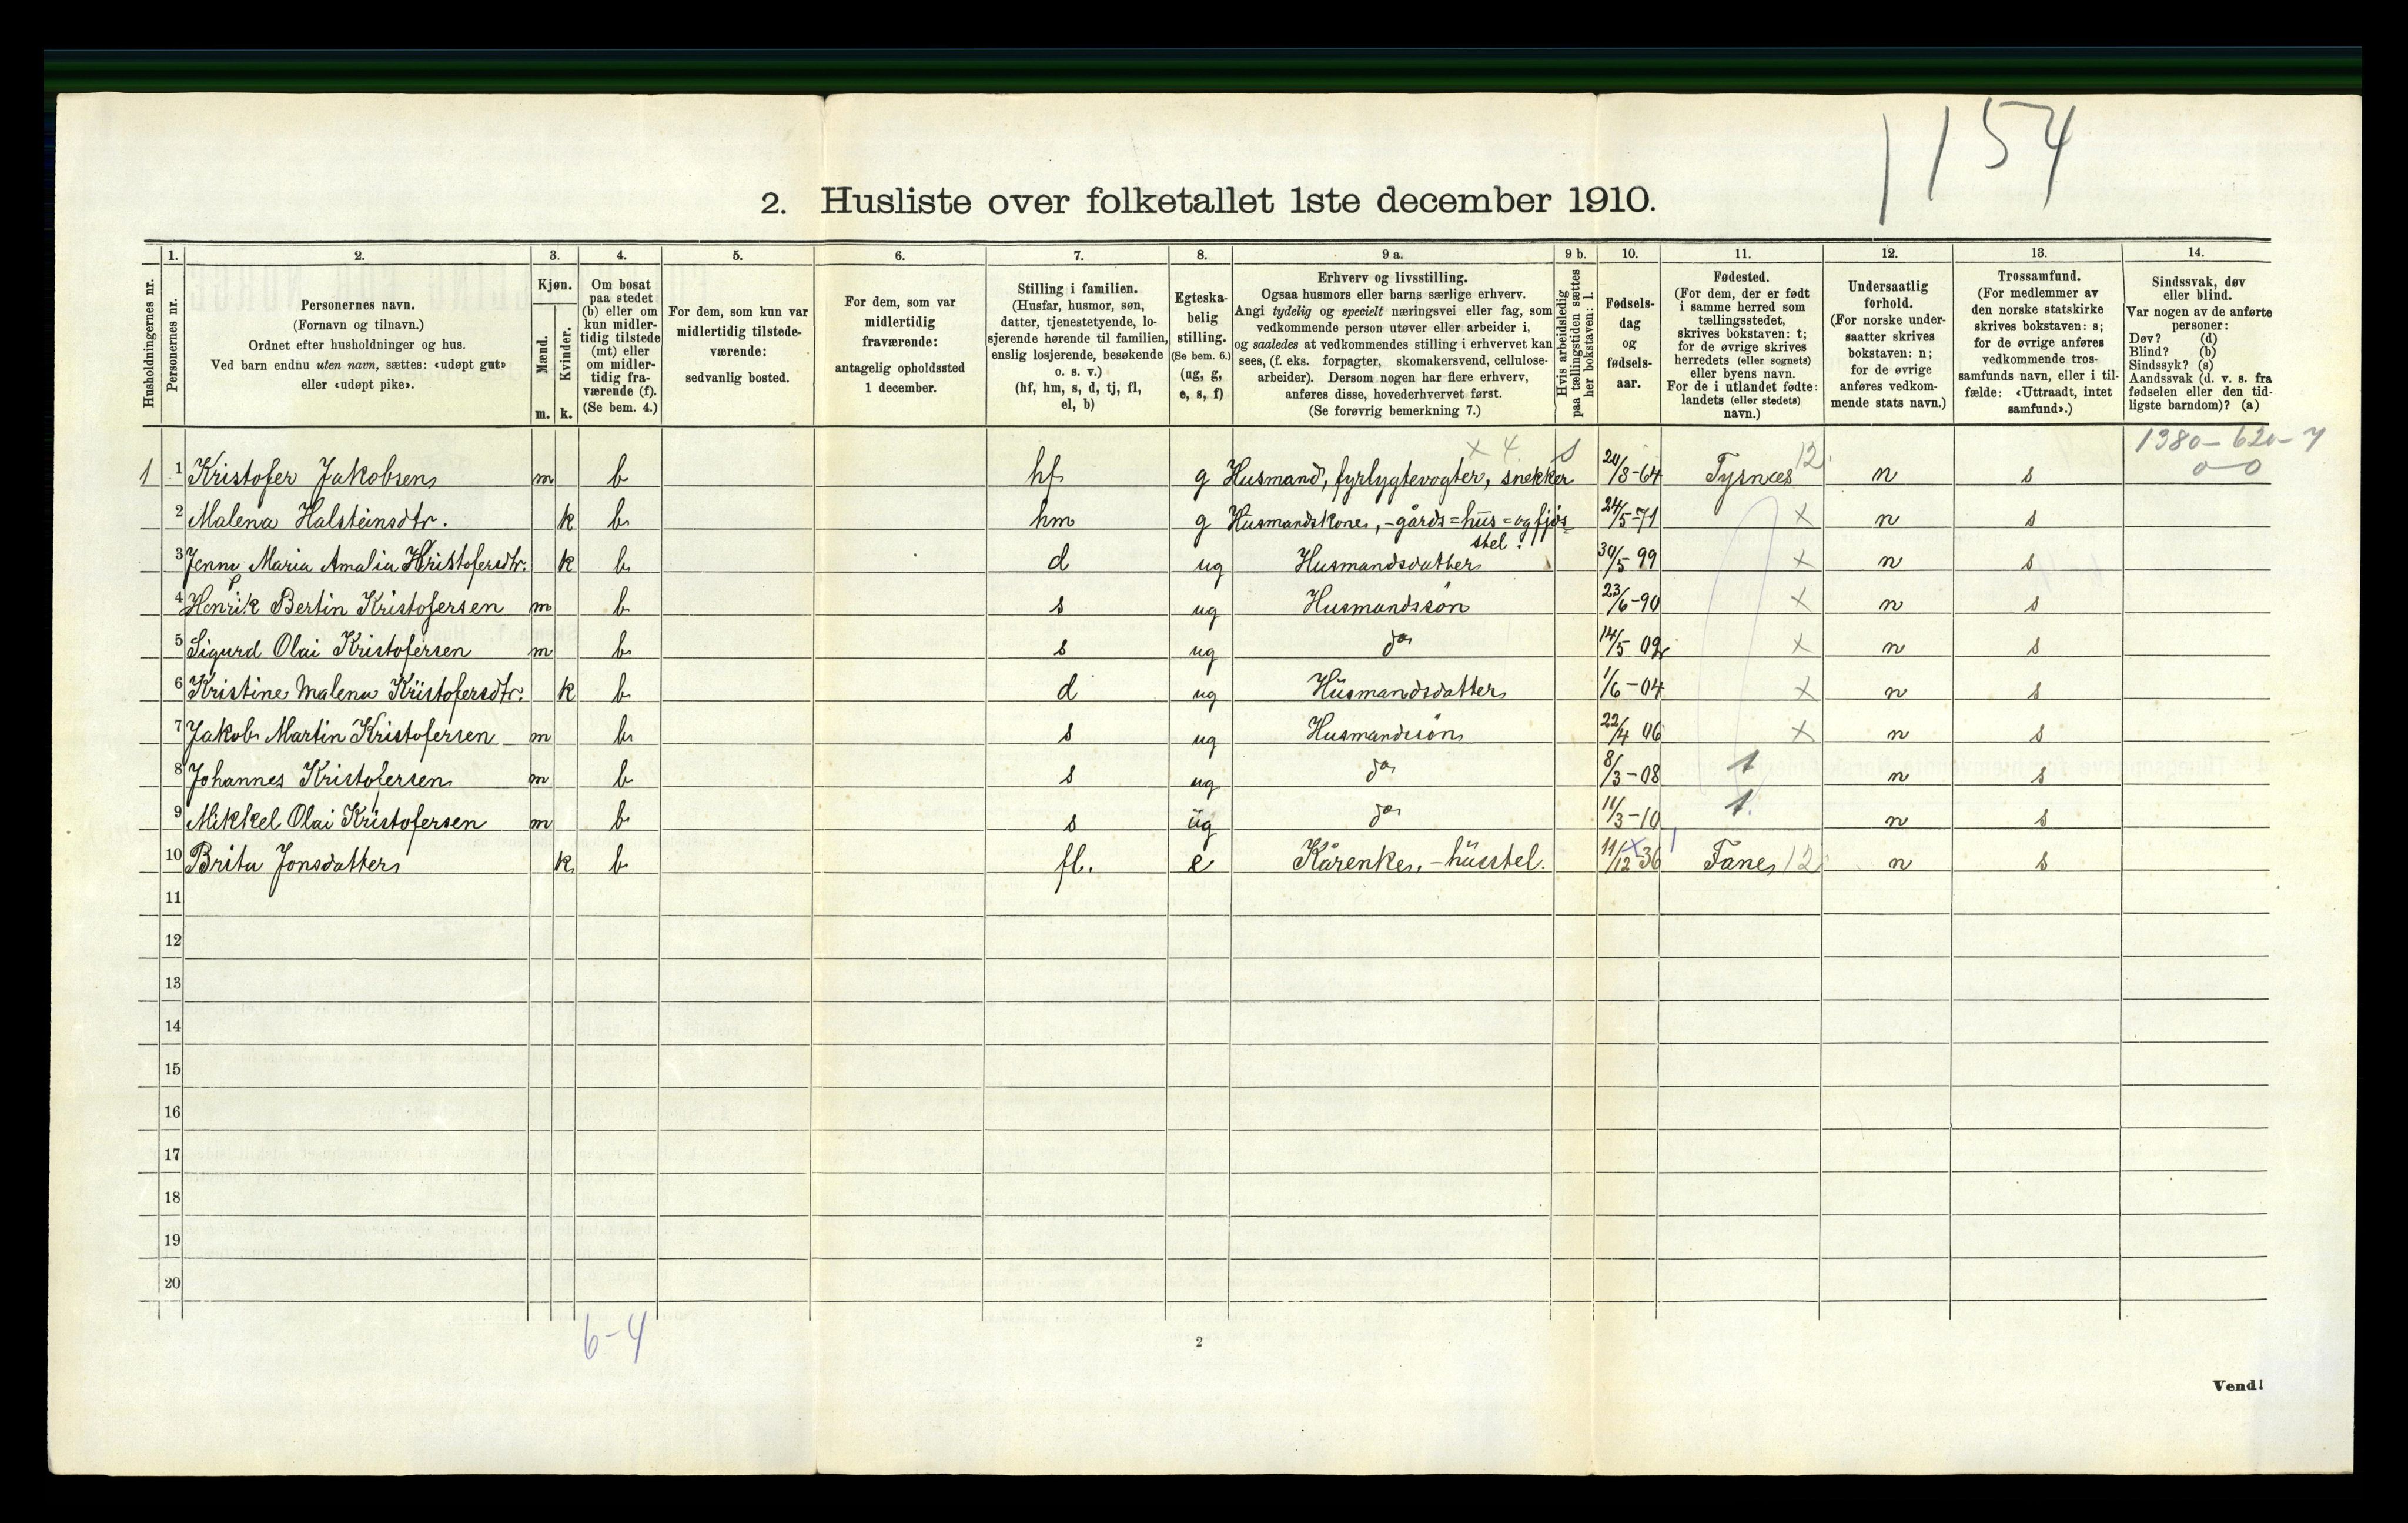 1154
2. Husliste over folketallet 1ste december 1910.
Husholdningernes nr.
1.
Personernes nr.
2.
Personernes navn.
(Fornavn og tilnavn.)
Ordnet efter husholdninger og hus.
Ved barn endnu uten navn, sættes: «udøpt gut»
eller «udøpt pike».
3.
Kjøn.
Mænd.
Kvinder.
m. k.
4.
Om bosat
paa stedet
(b) eller om
kun midler-
tidig tilstede
(mt) eller
om midler-
tidig fra-
værende (f).
(Se bem. 4.)
5.
For dem, som kun var
midlertidig tilstede-
værende:
sedvanlig bosted.
6.
For dem, som var
midlertidig
fraværende:
antagelig opholdssted
1 december.
7.
Stilling i familien.
(Husfar, husmor, søn,
datter, tjenestetyende, lo-
sjerende hørende til familien,
enslig losjerende, besøkende
o. s. v.)
(hf, hm, s, d, tj, fl,
el, b)
8.
Egteska-
belig
stilling.
(Se bem. 6.)
(ug, g,
e, s, f)
9 a.
Erhverv og livsstilling.
Ogsaa husmors eller barns særlige erhverv.
Angi tydelig og specielt næringsvei eller fag, som
vedkommende person utøver eller arbeider i,
og saaledes at vedkommendes stilling i erhvervet kan
sees, (f. eks. forpagter, skomakersvend, cellulose-
arbeider). Dersom nogen har flere erhverv,
anføres disse, hovederhvervet først.
(Se forøvrig bemerkning 7.)
9 b.
Hvis arbeidsledig
paa tællingstiden sættes
her bokstaven: l.
10.
Fødsels-
dag
og
fødsels-
aar.
11.
Fødested.
(For dem, der er født
i samme herred som
tællingsstedet,
skrives bokstaven: t;
for de øvrige skrives
herredets (eller sognets)
eller byens navn.
For de i utlandet fødte:
landets (eller stedets)
navn.)
12.
Undersaatlig
forhold.
(For norske under-
saatter skrives
bokstaven: n;
for de øvrige
anføres vedkom-
mende stats navn.)
13.
Trossamfund.
(For medlemmer av
den norske statskirke
skrives bokstaven: s;
for de øvrige anføres
vedkommende tros-
samfunds navn, eller i til-
fælde: «Uttraadt, intet
samfund».)
14.
Sindssvak, døv
eller blind.
Var nogen av de anførte
personer:
Døv? (d)
Blind? (b)
Sindssyk? (s)
Aandssvak (d. v. s. fra
fødselen eller den tid-
ligste barndom)? (a)
x 4. 1380-620-4
0-0
1 1 Kristofer Jakobsen m b hf g Husmand, fyrlygtevogter, snekker 20/8-64 Tysnæs 12 n s
2 Malena Halsteinsdtr. k b hm g Husmandskone, -gårds=hus=og fjøs=
stel. 24/5-71 x n s
3 Jenny Maria Amalia Kristofersdtr. k b d ug Husmandsdatter 30/5 99 x n s
4 Henrik Bertin Kristofersen m b s ug Husmandssøn 23/6-90 x n s
5 Sigurd Olai Kristofersen m b s ug do 14/5 02 x n s
6 Kristine Malena Kristofersdtr. k b d ug Husmandsdatter 1/6-04 x n s
7 Jakob Martin Kristofersen m b s ug Husmandssøn 22/4 06 x n s
8 Johannes Kristofersen m b s ug do 8/3-08 t n s
9 Mikkel Olai Kristofersen m b s ug do 11/3-10 t. n s
10 Brita Jonsdatter k b fl. e Kårenke, -husstel. 11/12 x 36 Fane 12 n s
11
12
13
14
15
16
17
18
19
20
6-4
2
Vend!